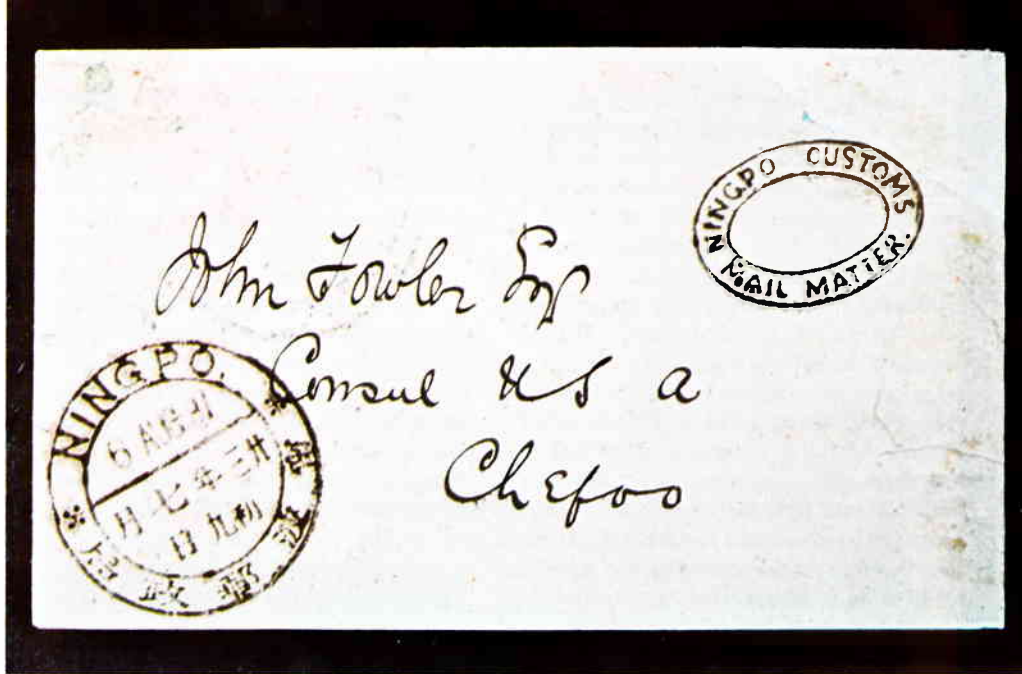 NINGPO CUSTOMS
MAIL MATTER.
John Fowler Esq
Consul U S A
Chefoo
NINGPO.
6 AUG 97
廿三年七月
初九日
寧波郵政局